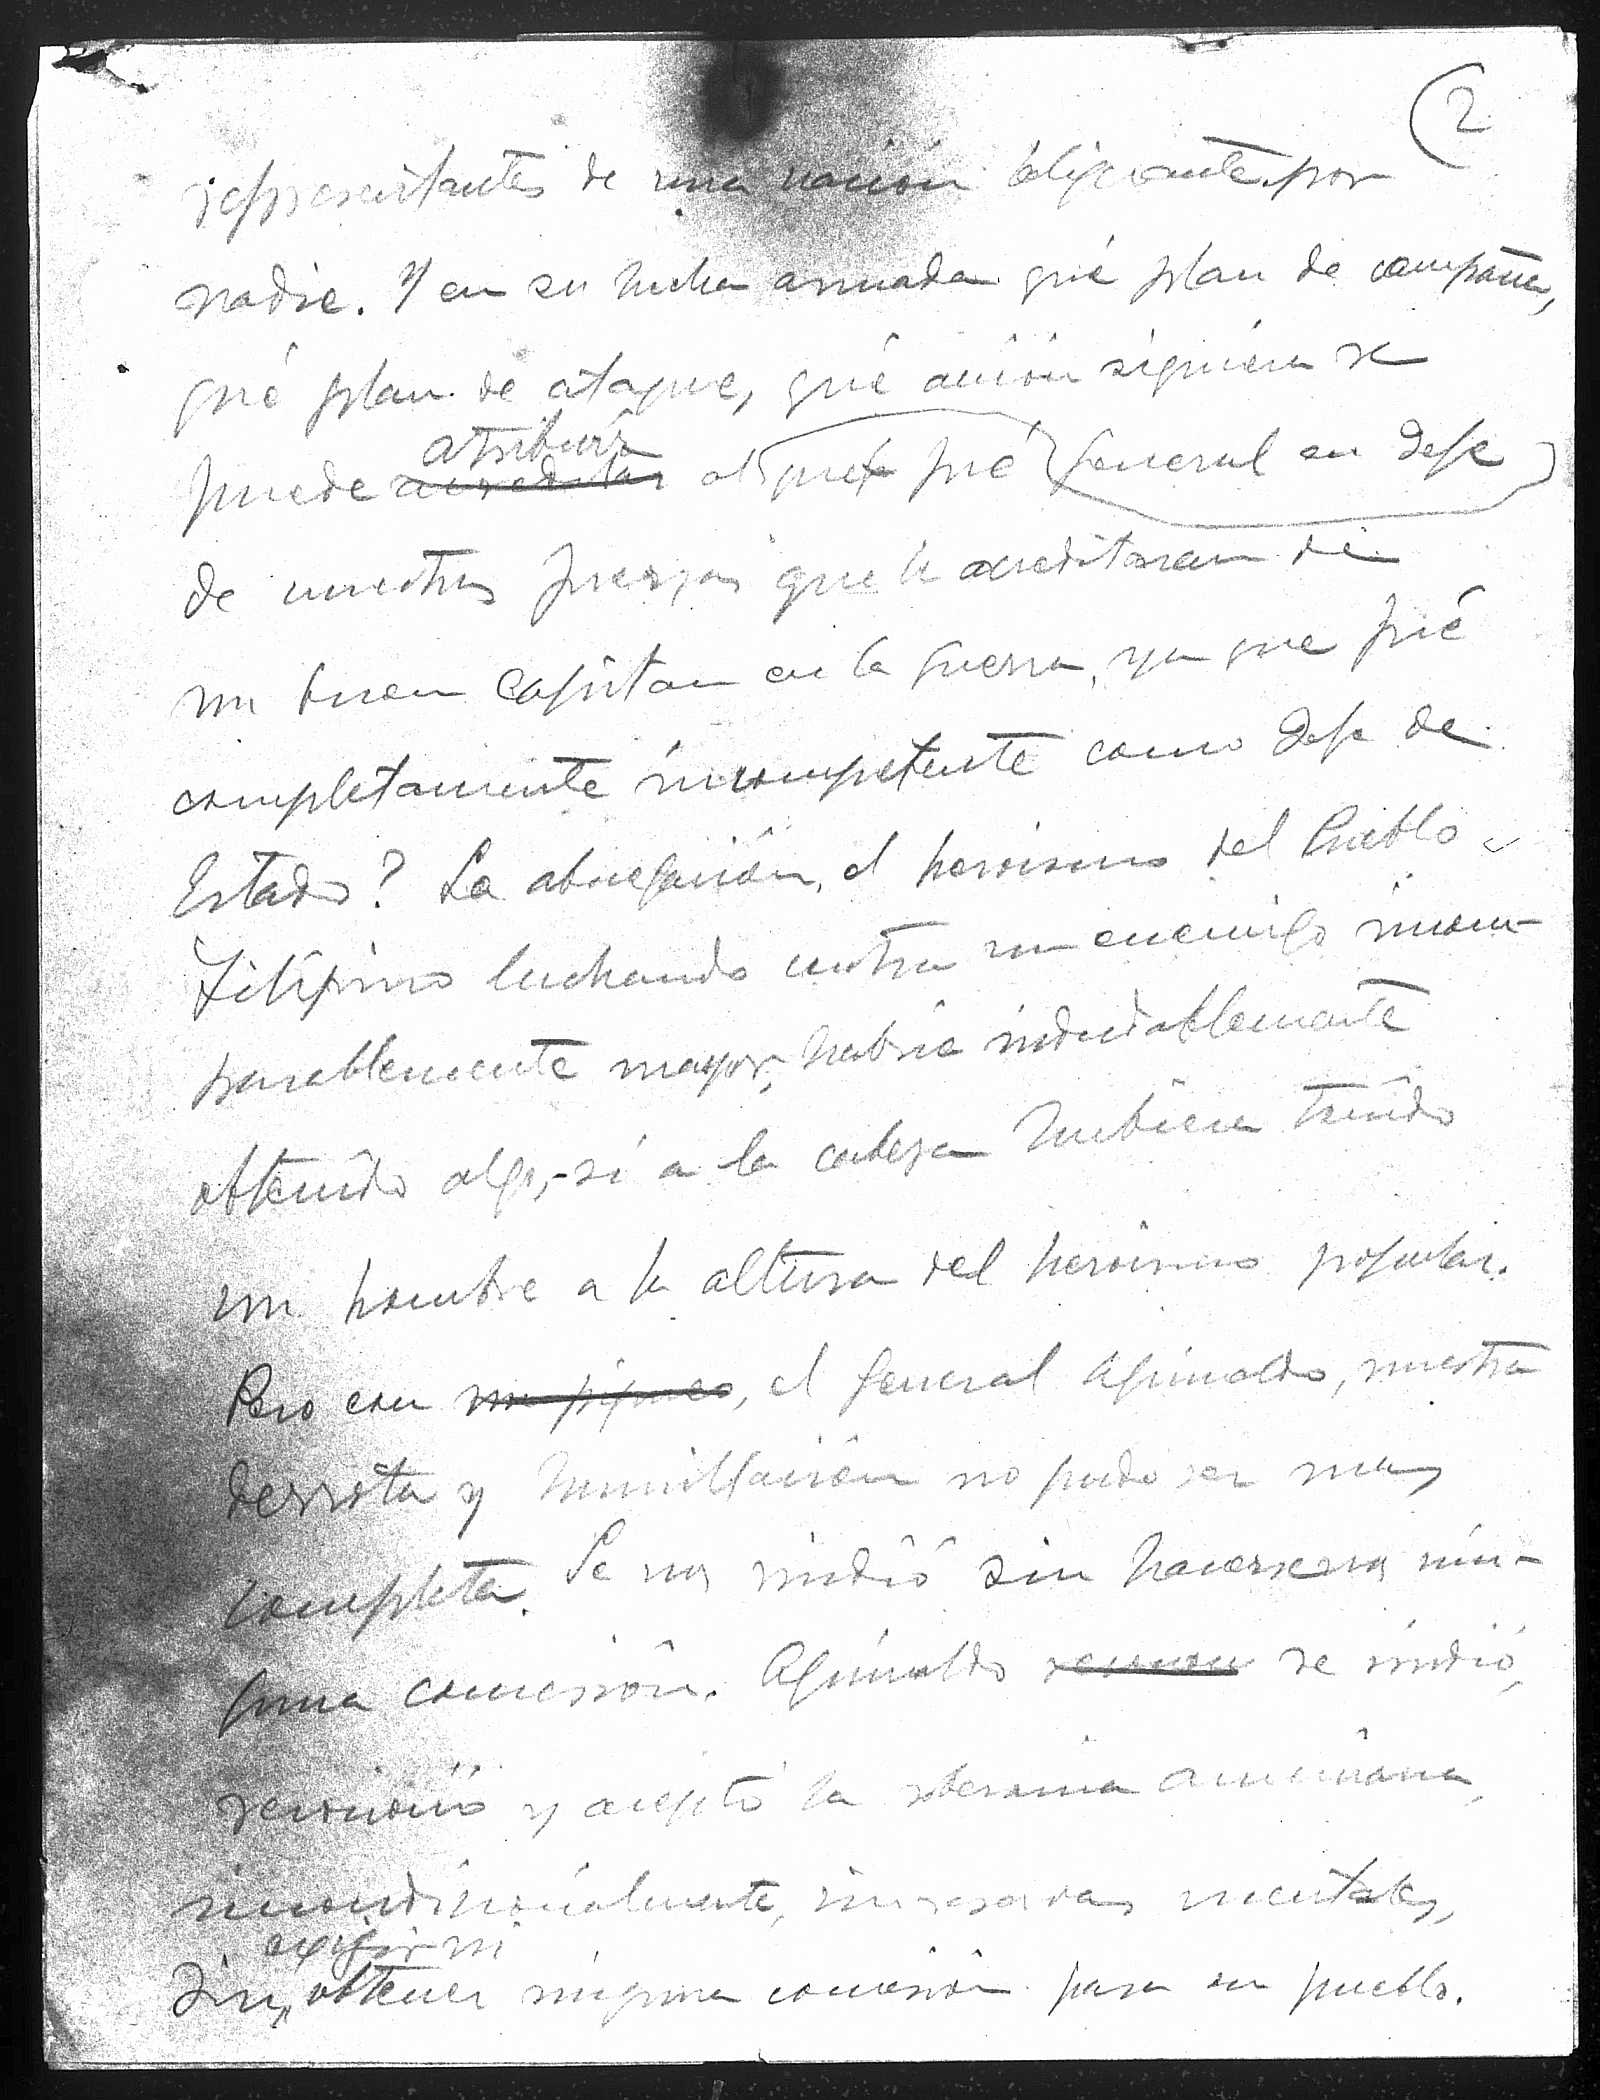 2
representantes de una nación beligerante por
nadie. Y en su lucha armada qué plan de campaña,
qué plan de ataque, qué acción siquiera se
atribuir
puede acreditar al que fué general en Jefe
de nuestras fuerzas que le acreditaran de
un buen capitan en la guerra, ya que fué
completamente incompetente como Jefe de
Estado? La abnegación, el heroismo del Pueblo
Filipino luchando contra un enemigo incom-
parablemente mayor, habria indudablemente
obtenido algo, si a la cabeza hubiera tenido
un hombre a la altura del heroismo popular.
Pero con un pigmeo, el general Aguinaldo, nuestra
derrota y humillación no pudo ser mas
completa. Se nos rindió sin hacersenos nin-
guna concesión. Aguinaldo se rindió,
reconoció y aceptó la soberania americana,
incondicionalmente, sin reservas mentales,
exigir ni
Sin obtener ninguna concesión para su pueblo.